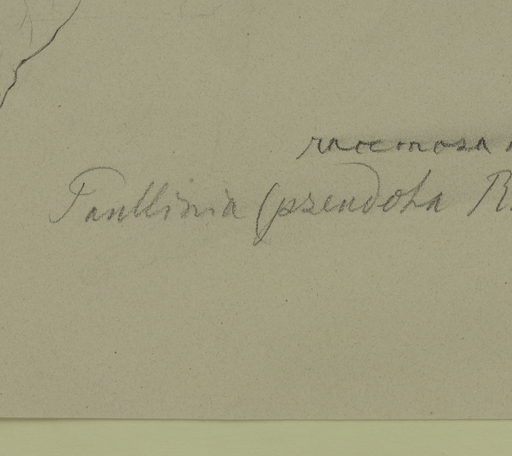 racemosa
Paullinia (pseudota R